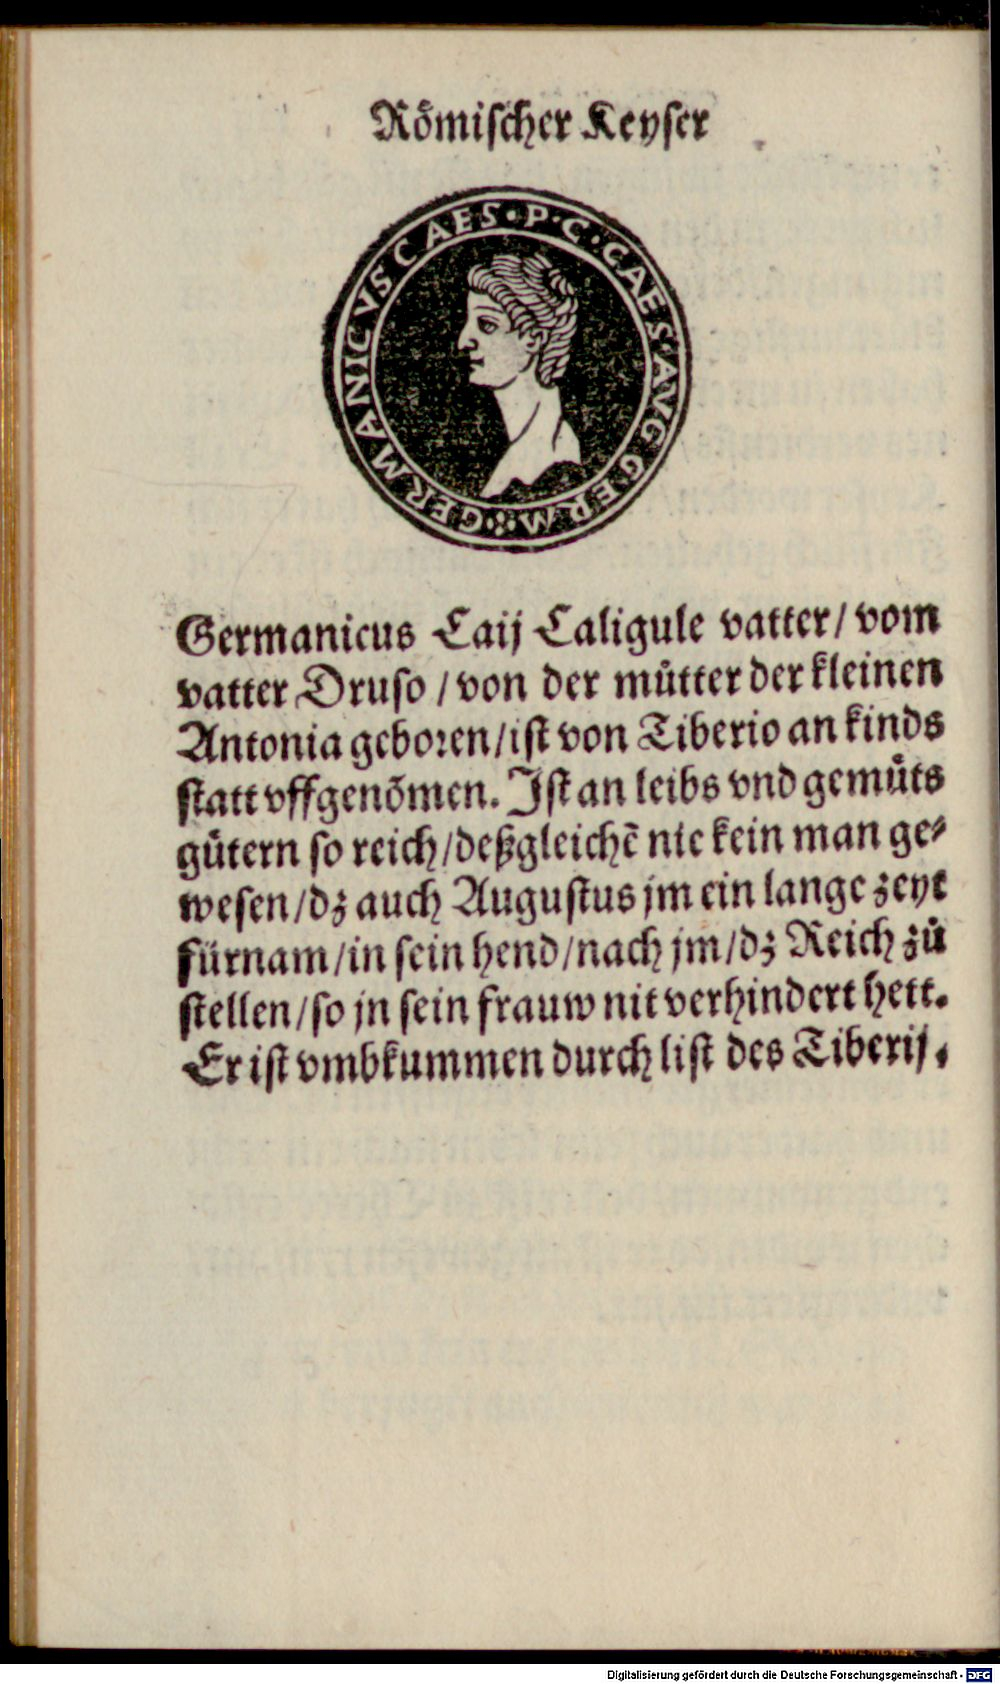 Roͤmischer Keyser
GERMANICVS CAES · P · C · CAES · AVG GERM
Germanicus Caij Caligule vatter / vom
vatter Druso / von der muͤtter der kleinen
Antonia geboren / ist von Tiberio an kinds
statt vffgenõmen. Ist an leibs vnd gemuͤts
guͤtern so reich / deßgleichẽ nie kein man ge⸗
wesen / dz auch Augustus jm ein lange zeyt
fürnam / in sein hend / nach jm / dz Reich zuͦ
stellen / so jn sein frauw nit verhindert hett.
Er ist vmbkummen durch list des Tiberij.
Digitalisierung gefördert durch die Deutsche Forschungsgemeinschaft - DFG